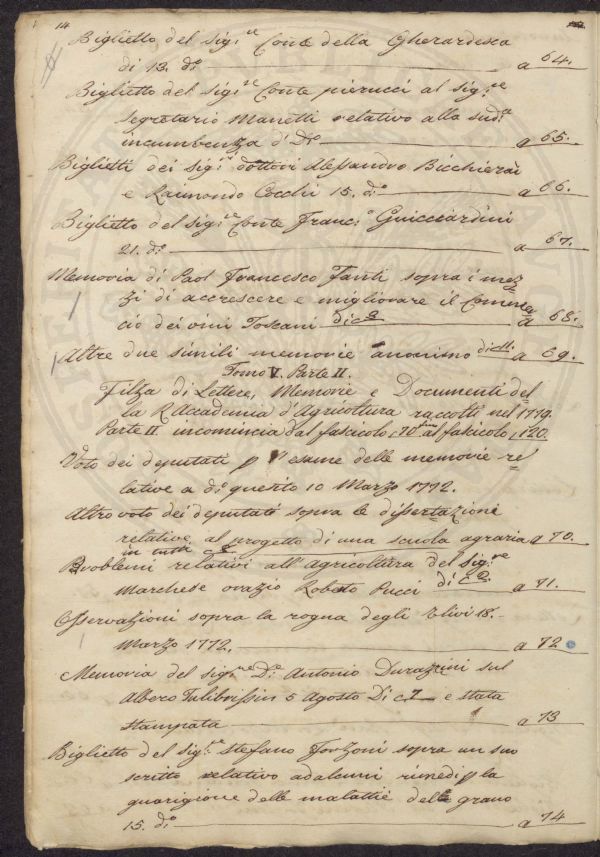 14
Biglietto del Sig.re Conte della Gherardesca
di 13. d.o a 64.
Biglietto del Sig.re Conte pierucci al Sig.re
Segretario Manetti relativo alla sud.a
incumbenza d'D.o a 65.
Biglietti dei Sig.ri dottori Alessandro Bicchierai
e Raimondo Cocchi 15. d.o a 66.
Biglietto del Sig.re Conte Franc.o Guicciardini
21. d.o a 67.
Memoria di Paol Francesco Fanti sopra i mez=
zi di accrescere e migliorare il Comer=
cio dei vini Toscani di c 8 a 68.
Altre due simili memorie anonimo di 11. a 69.
Tomo V. Parte II.
Filza di Lettere, Memorie e Documenti del=
la R. Accademia d'Agricoltura raccolti nel 1779.
Parte II. incomincia dal fascicolo, 70 al fascicolo, 120.
Voto dei deputati p l'esame delle memorie re=
lative a d.o quesito 10 Marzo 1772.
Altro voto dei deputati sopra le dissertazioni
relative al progetto di una scuola agraria a 70.
in tutti c 8
Problemi relativi all'Agricoltura del Sig.re
Marchese orazio Roberto Pucci di c 2. a 71.
Osservazioni sopra la rogna degli Ulivi 18.
Marzo 1772. a 72
Memoria del Sig.re D.re Antonio Durazzini sul
Albero Tulibrissin 5 Agosto Di c 7 e stata
stampata a 73
Biglietto del Sig.re Stefano Forzoni sopra un suo
scritto relativo ad alcuni rimedi p la
guarigione delle malattie delle grano
15. d.o a 74